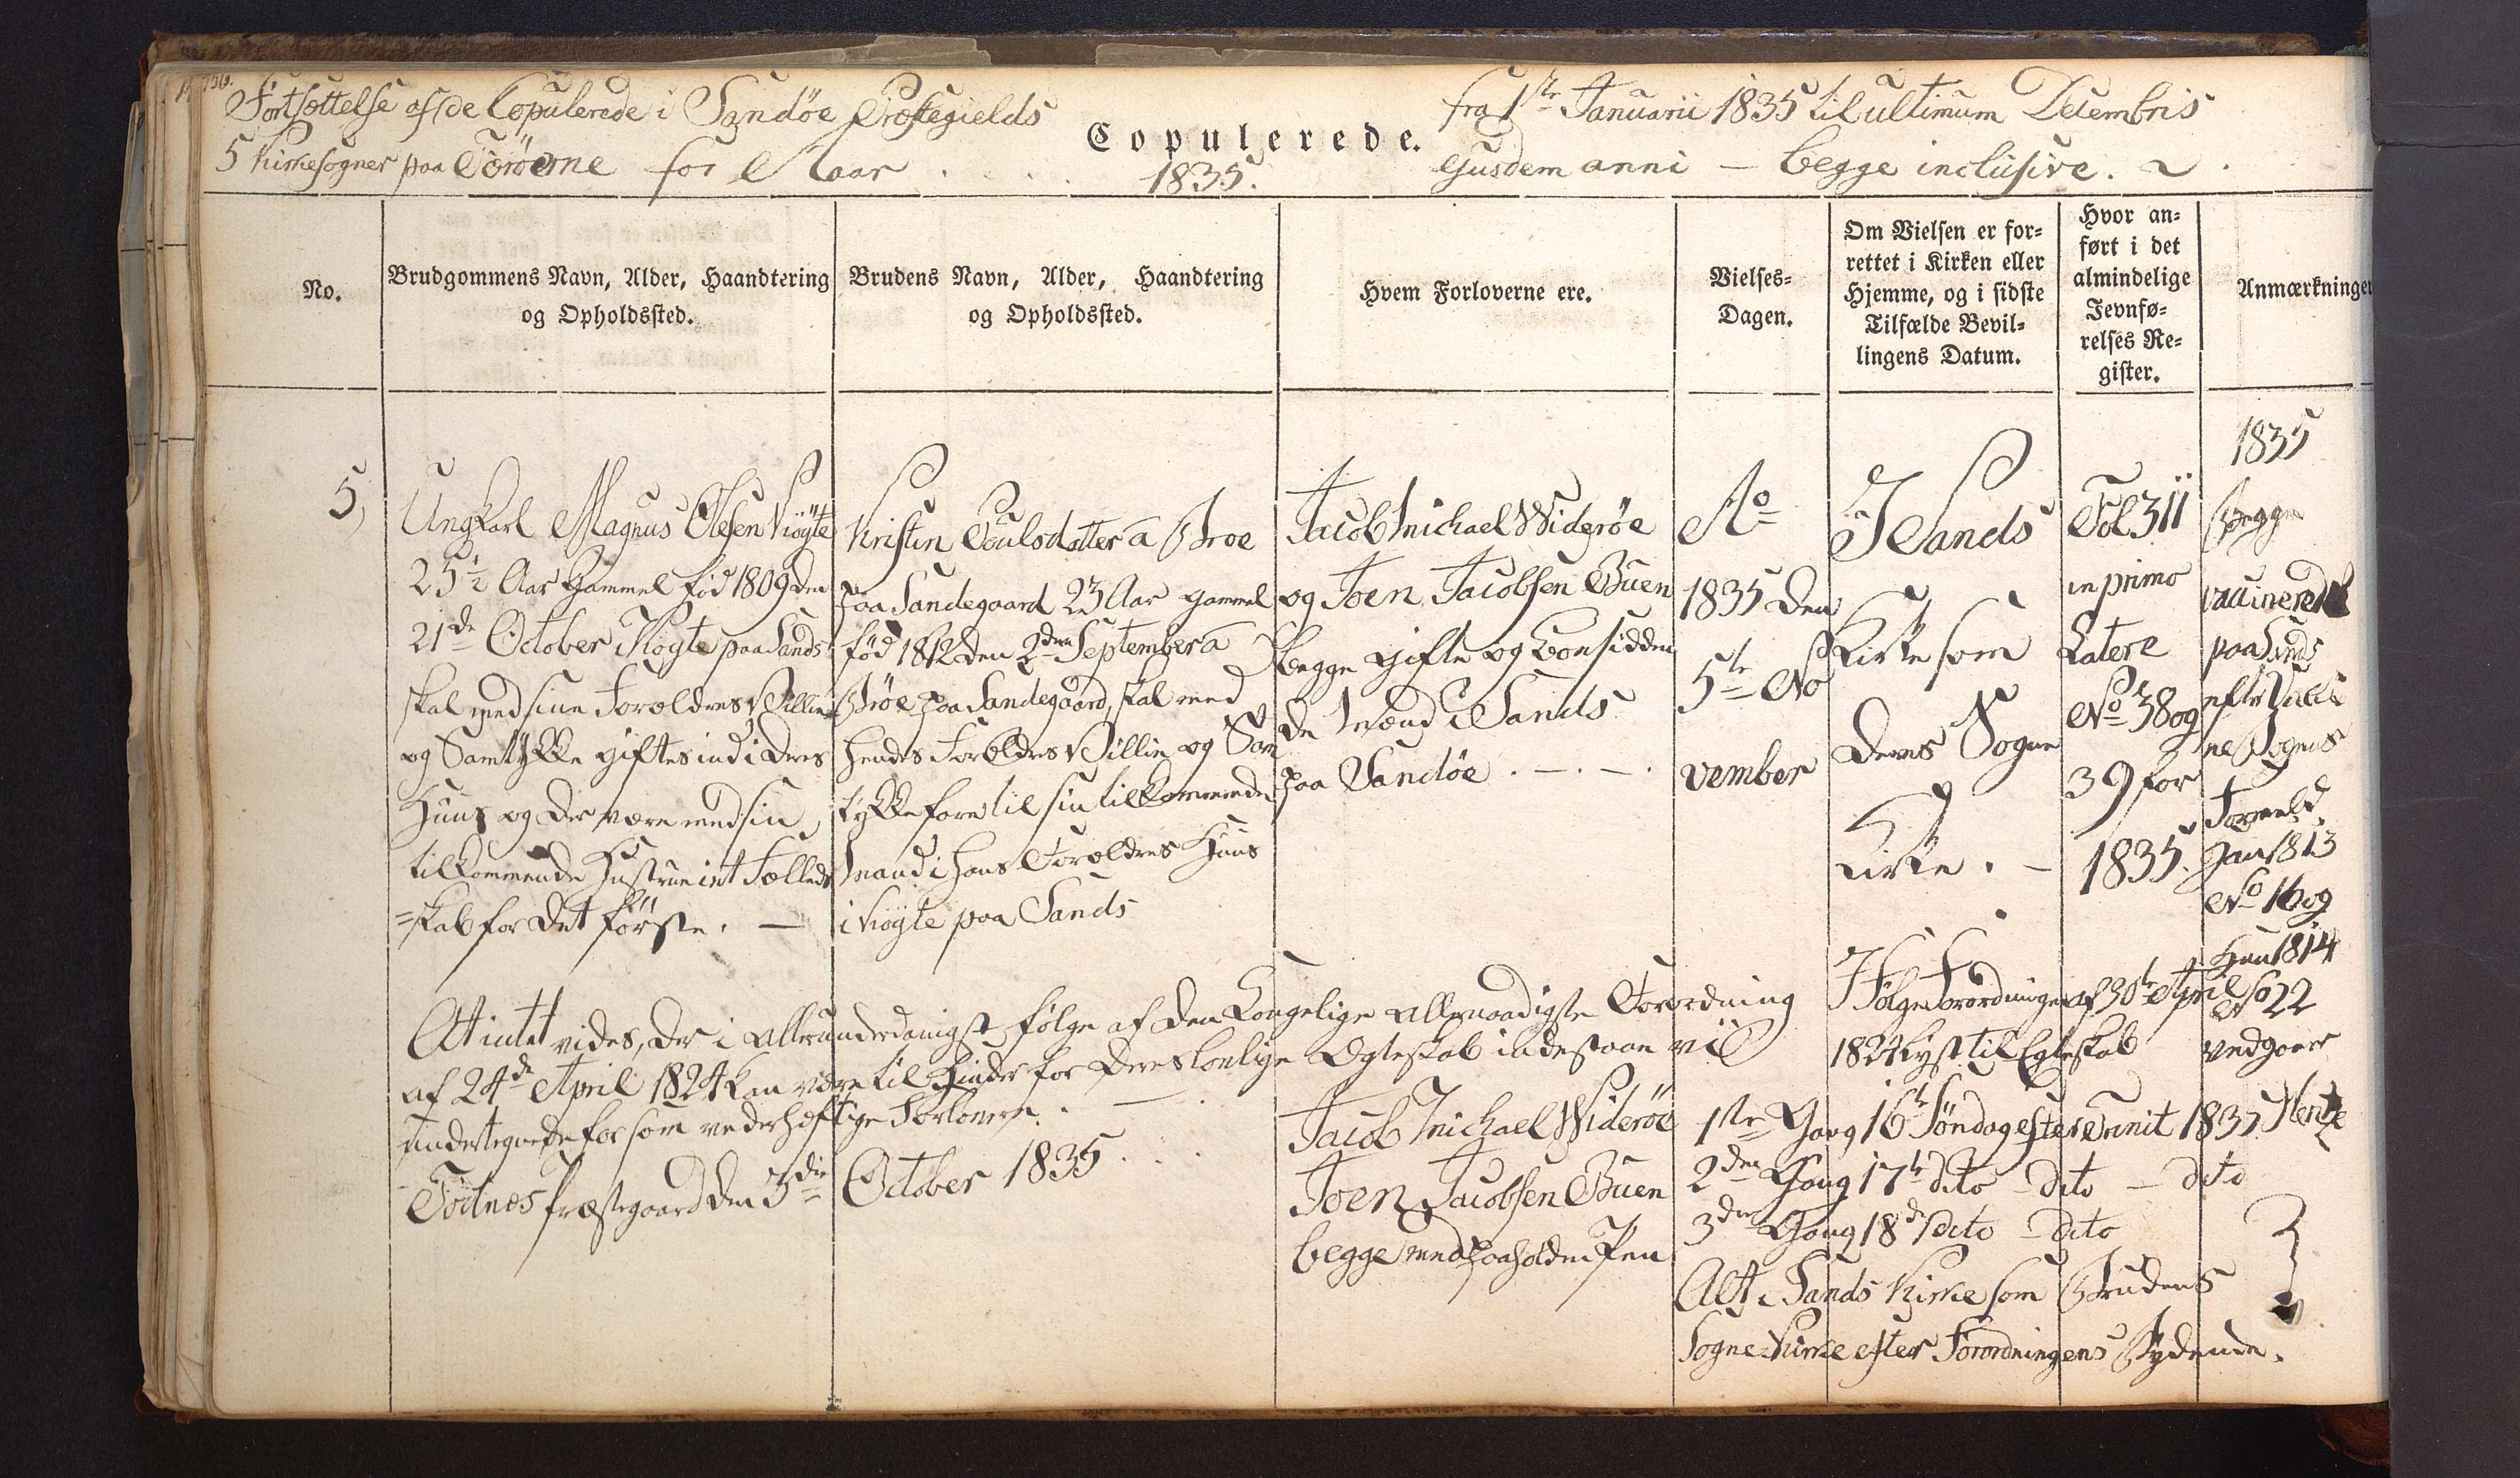 136.
Fortsættelse af de Copulerede i Sandöe Præstegields
5 Kirkesogner paa Færöerne for Aaar . . . .
Copulerede.
1835.
fra 1ste Januarii 1835 til ultimum Decembris
ejusdem anni — begge inclusive.
No.
Brudgommens Navn, Alder, Haandtering
og Opholdssted.
Brudens Navn, Alder, Haandtering
og Opholdssted.
Hvem Forloverne ere.
Vielses-
Dagen.
Om Vielsen er for-
rettet i Kirken eller
Hjemme, og i sidste
Tilfælde Bevil-
lingens Datum.
Hvor an-
ført i det
almindelige
Jevnfø-
relses Re-
gister.
Anmærkninger
5,
Ungkarl Magnus Olesen Kiöyte
25½ Aar Gammel fød 1809 den
21de October i Köyte paa Sands
skal med sine Foroldres Villie
og Samtykke giftes ind i deres
Huus og der være med sin
tilkommende Hustrue i et Fælleds
=skab for det förste. —
Kristin Poulsdatter a Broe
paa Sandegaard 23 Aar gammel
fød 1812 den 2den September a
Bröe paa Sandegaard, skal med
hendes Forældres Villie og Sam
tykke fare til sin tilkommende
Mand i hans Foroldres Huus
i Kiöyte paa Sands
Jacob Michael Wideröe
og Joen Jacobsen Buen
begge gifte og bonsidden
de Mænd i Sands
paa Sandöe . — . — .
Ao
1835 den
5te No
vember
I Sands
Kirke som
deres Sogne
Kirke. —
Fol 311
in primo
Latere
No 38 og
39 for
1835.
1835
Begge
vaccinerede
paa Sands
efter
ne Sognes
Formeld.
Han 1813
No 16 og
Hun 1814
No 22
vedgaaer
Hentze
At intet vides, der i allerunderdanigst følge af den Kongelige allernaadigste Forordning
af 24de April 1824 kan være til Hinder for deres lovlige Ægteskab indestaae vi
undertegnede for som vederhæftige Forlovere. —
Todnes Præstegaard den 3die October 1835 . . .
Jacob Michael Wideröe
Joen Jacobsen Buen
begge med paaholden Pen
I Følge Forordningen af 30te April
1824 lyst til Egteskab
1ste Gang 16te Söndag efter Trinit 1835
2den Gang 17te dito – dito – dito
3die Gang 18de dito – dito
Alt i Sands Kirke som Brudens
Sogne Kirke efter Forordningens Bydende.